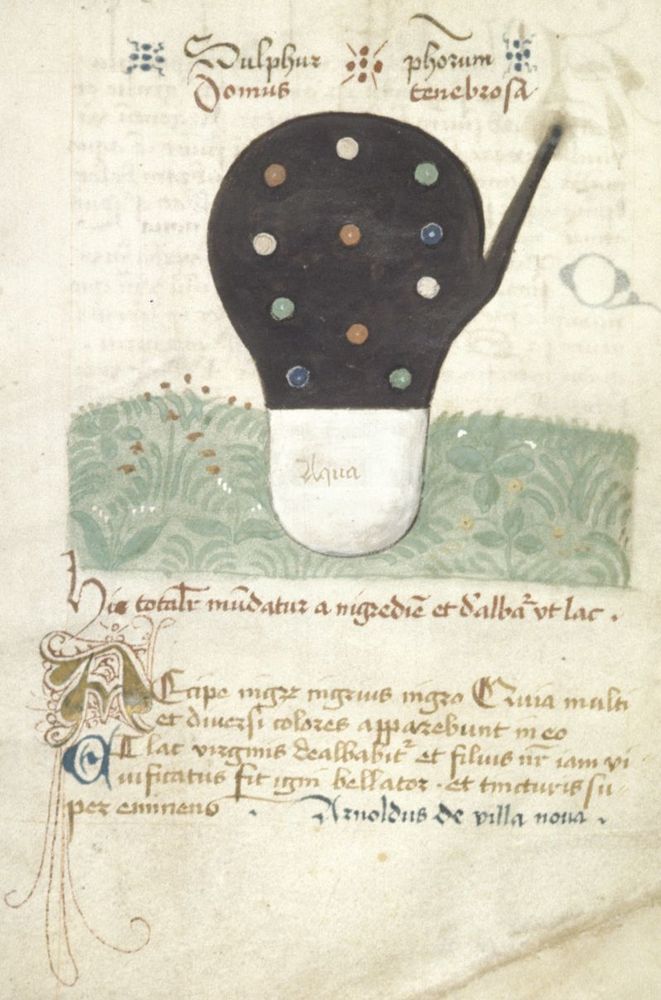 Sulphur phorum
Domus tenebrosa
Aqua
Hic totalr mūdatur a nigrediē et d'albat̄ vt lac .
Accipe nigrū nigrius nigro Quia multi
et diversi colores apparebunt in eo
Al lac virginis dealbabit᷑ et filius nr̄ iam vi
vificatus fit igni bellator . et tincturis su-
per eminens .
Arnoldus de villa nova .